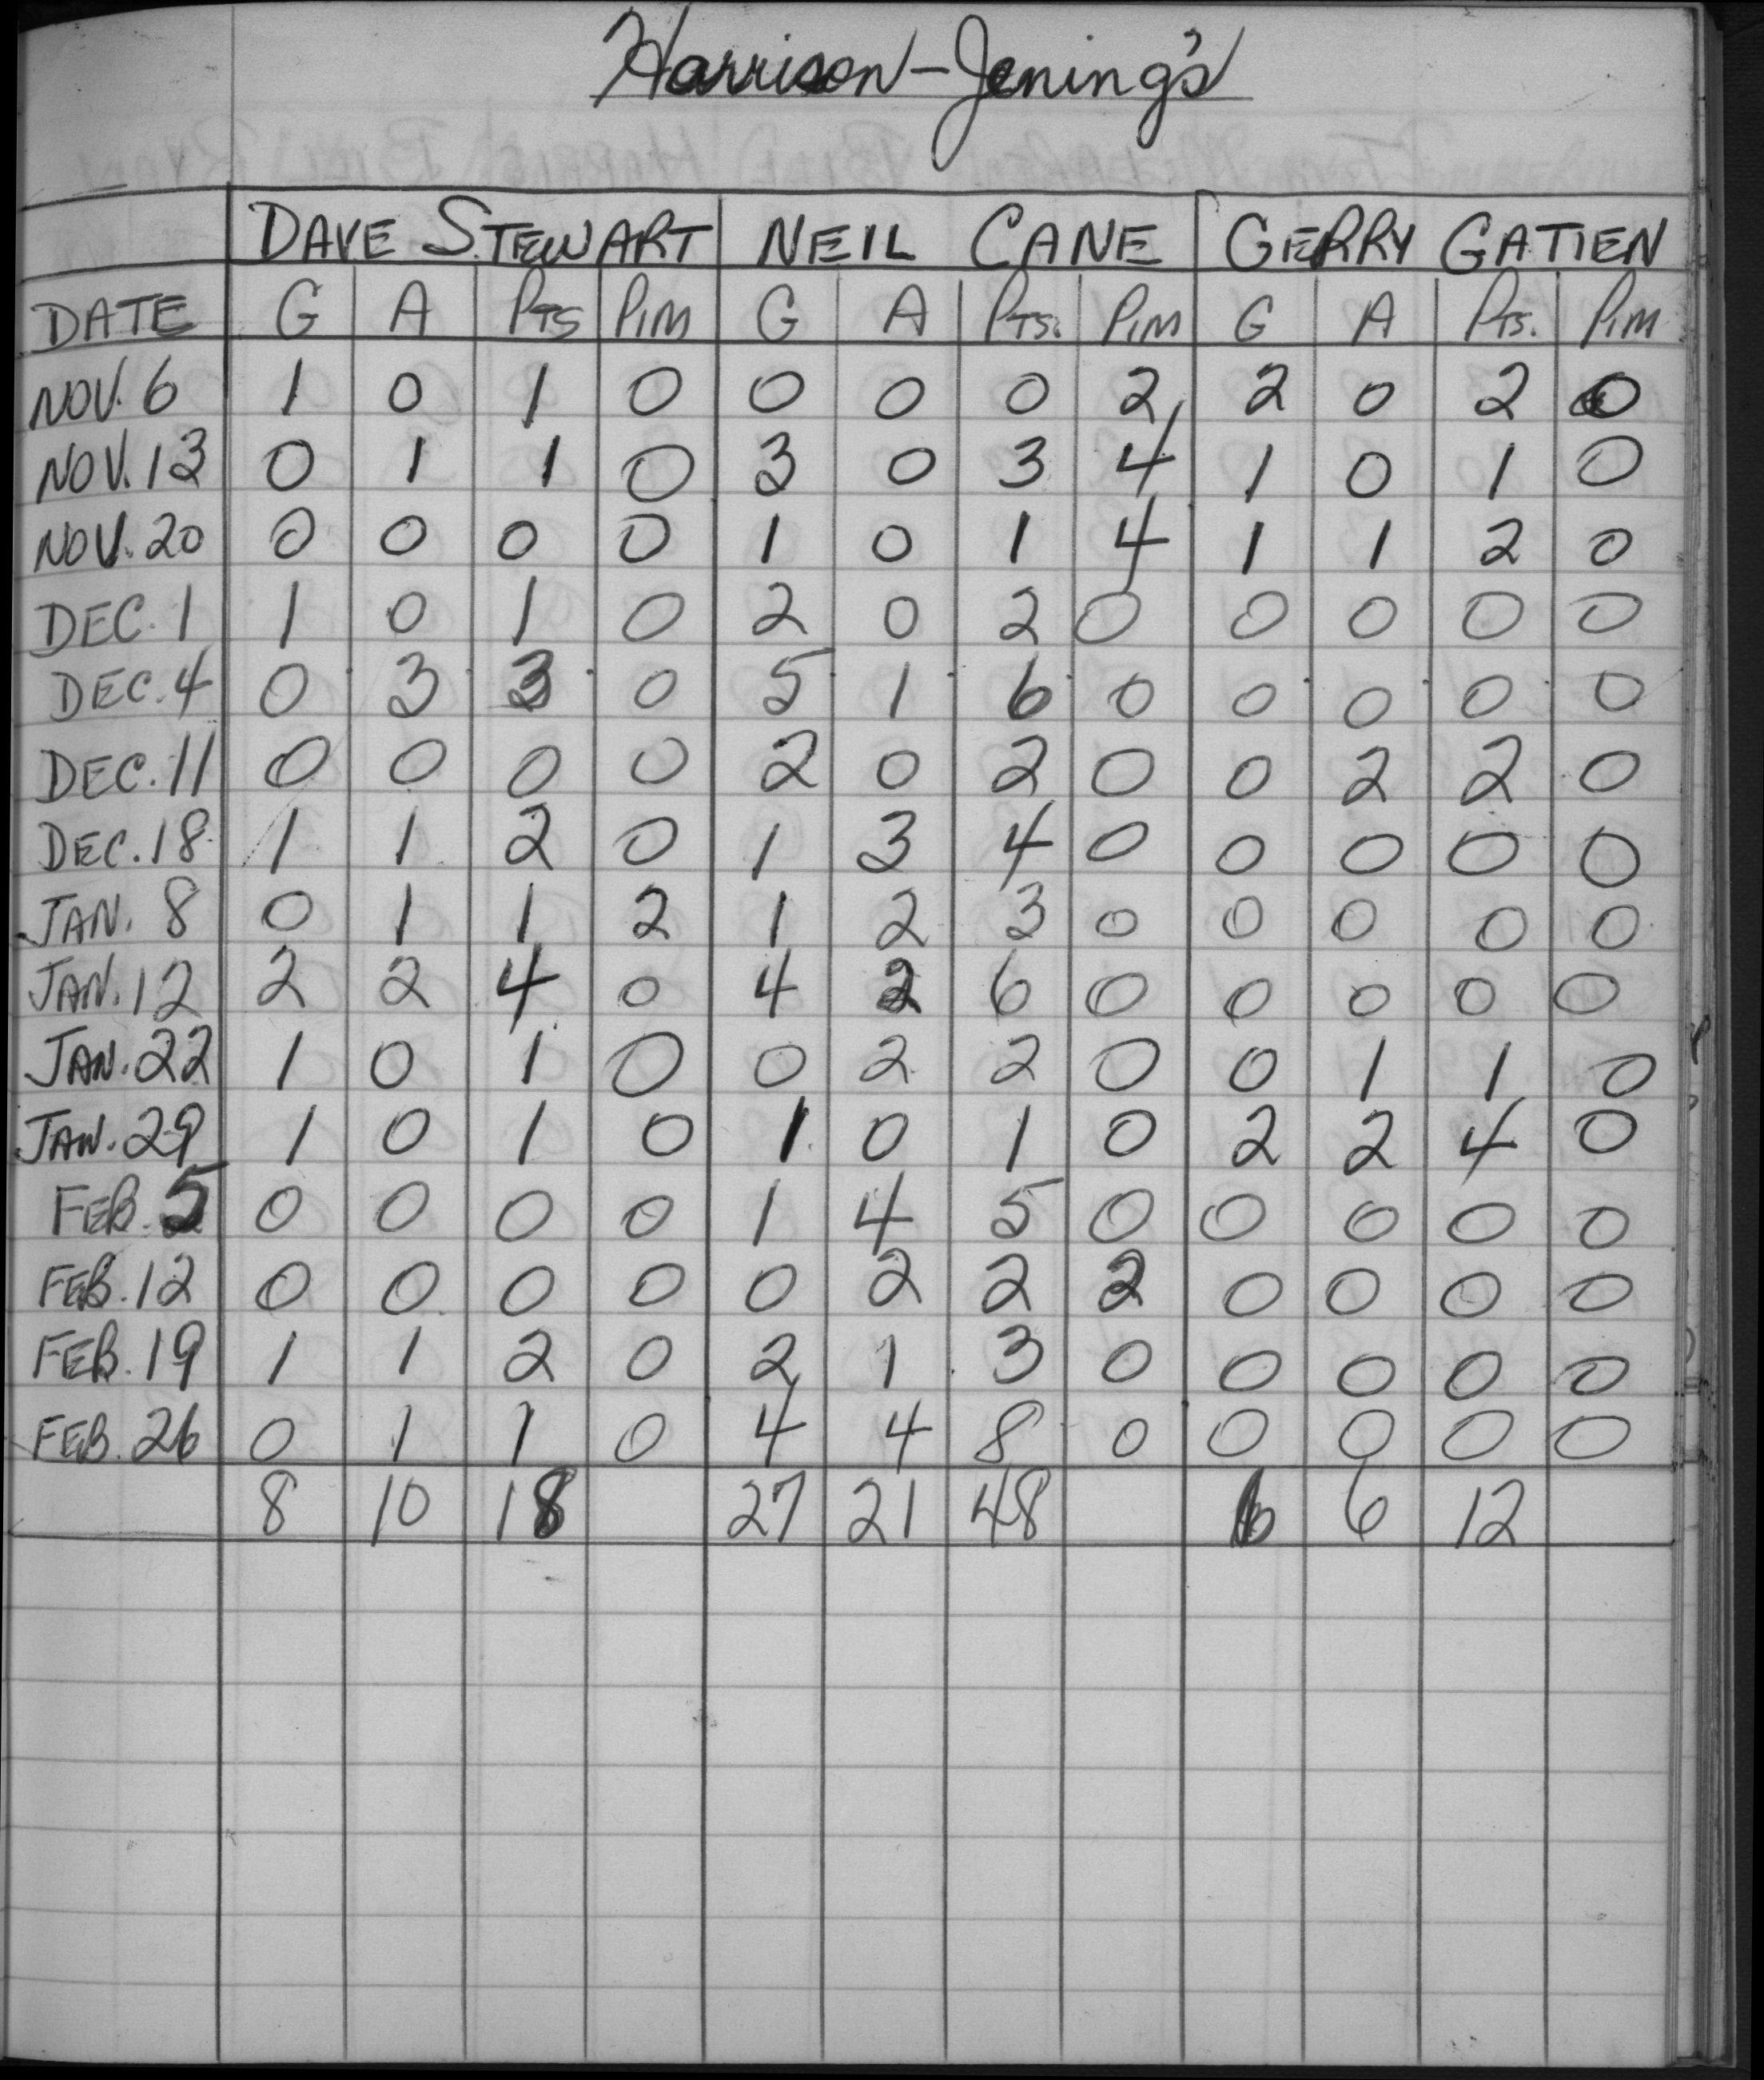 Harrison-Jening's
DAVE STEWART NEIL CANE GERRY GATIEN
DATE G A PTS PIM G A PTS. PIM G A PTS. PIM
NOV. 6 1 0 1 0 0 0 0 2 2 0 2 0
NOV. 13 0 1 1 0 3 0 3 4 1 0 1 0
NOV. 20 0 0 0 0 1 0 1 4 1 1 2 0
DEC. 1 1 0 1 0 2 0 2 0 0 0 0 0
DEC. 4 0 3 3 0 5 1 6 0 0 0 0 0
DEC. 11 0 0 0 0 2 0 2 0 0 2 2 0
DEC. 18 1 1 2 0 1 3 4 0 0 0 0 0
JAN. 8 0 1 1 2 1 2 3 0 0 0 0 0
JAN. 12 2 2 4 0 4 2 6 0 0 0 0 0
JAN. 22 1 0 1 0 0 2 2 0 0 1 1 0
JAN. 29 1 0 1 0 1 0 1 0 2 2 4 0
FEB. 5 0 0 0 0 1 4 5 0 0 0 0 0
FEB. 12 0 0 0 0 0 2 2 2 0 0 0 0
FEB. 19 1 1 2 0 2 1 3 0 0 0 0 0
FEB. 26 0 1 1 0 4 4 8 0 0 0 0 0
8 10 18 27 21 48 6 6 12